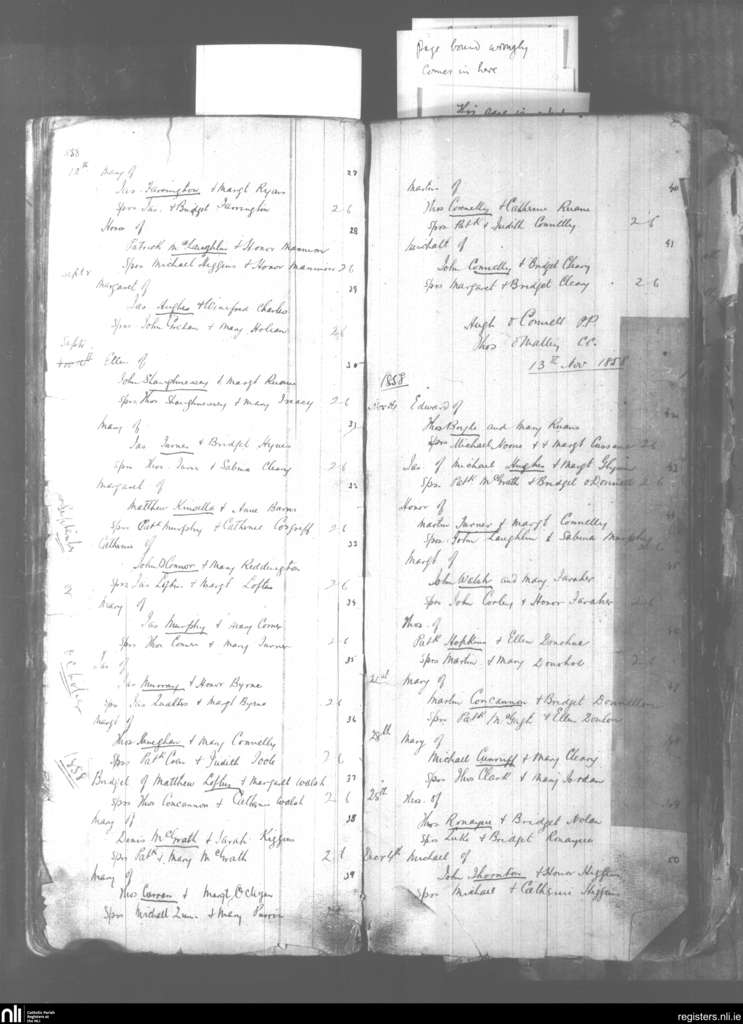 Page bound wrongly
comes in here
1858
12th Mary of 27
Jas. Farrington & Margt Ryan
Spors Jas. & Bridget Farrington 2-6
Honor of 28
Patrick McLaughlin & Honor Mannion
Spors Michael Higgins & Honor Mannion 2 6
Septr
Margaret of 29
Jas Hughes & Winifred Charles
Spors John & Mary Holian 2 6
Septr
Ellen of 30
John Shaughnessy & Margt Ruane
Spors Thos Shaughnessy & Mary 2-6
Mary of 31
Jas Turner & Bridget Hynes
Spors Thos. & Sabina Cleary 2-6
Margaret of 32
Matthew Kinsella & Anne Burns
Spors Patt Murphy & Catherine Cosgriff 2-6
September
Catherine of 33
John O'Connor & Mary Reddington
Spors Jas Loftus & Margt Loftus 2 6
2
Mary of 34
Jas Murphy & Mary Comer
Spors Thos Comer & Mary Turner 2-6
October
Jas of 35
Jas Murray & Honor Byrne
Spors Jas & Margt Byrne 2 6
Margt of 36
Thos & Mary Connelly
Spors Patk & Judith Toole 2 6
1858
Bridget of Matthew Loftus & Margaret Walsh 37
Spors Thos Concannon & Catherine Walsh 2 6
Mary of 38
Denis McGrath & Sarah Higgins
Spors Patk & Mary McGrath 2 6
Mary of 39
Thos Curran & Margt
Spors Michael & Mary
Martin of 40
Thos Connelly & Catherine Ruane
Spors Patk & Judith Connelly 2-6
of 41
John Connelly & Bridget Cleary
Spors Margaret & Bridget Cleary 2-6
Hugh O Connell PP.
Thos O'Malley CC.
13th Nov 1858
1858
Edward of
Thos Boyle and Mary Ruane
Spors Michael & Margt 2-6
Jas. of Michael Hughes & Margt Glynn 43
Spors Patk McGrath & Bridget O Donnell 2 6
Honor of
Martin Turner & Margt Connelly
Spors John Laughlin & Sabina Murphy
Margt of
John Walsh and Mary Faraher
Spors John Corley & Honor Faraher 2-6
Thos. of
Patk Hopkins & Ellen Donohue
Spors Martin & Mary Donohoe 2-6
21st Mary of
Martin Concannon & Bridget
Spors Patk McHugh & Ellen
28th Mary of
Michael & Mary Cleary
Spors Thos Clark & Mary Jordan
28th Thos. of
Thos Ronayne & Bridget Nolan
Spors Luke & Bridget Ronayne
Decr 4th Michael of 50
John Thornton & Honor Higgins
Spors Michael & Catherine Higgins
nli
Catholic Parish
Registers at
the NLI
registers.nli.ie